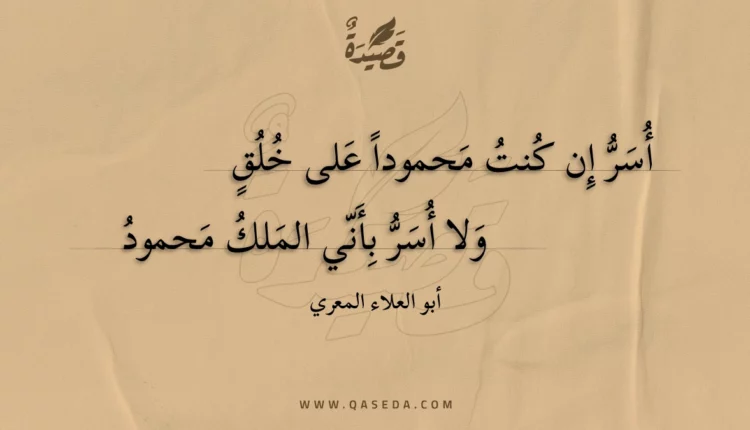 قَصِيدَةٌ
أُسَرُّ إِن كُنتُ مَحموداً عَلى خُلُقٍ
وَلا أُسَرُّ بِأَنّي المَلكُ مَحمودُ
أبو العلاء المعري
WWW.QASEDA.COM